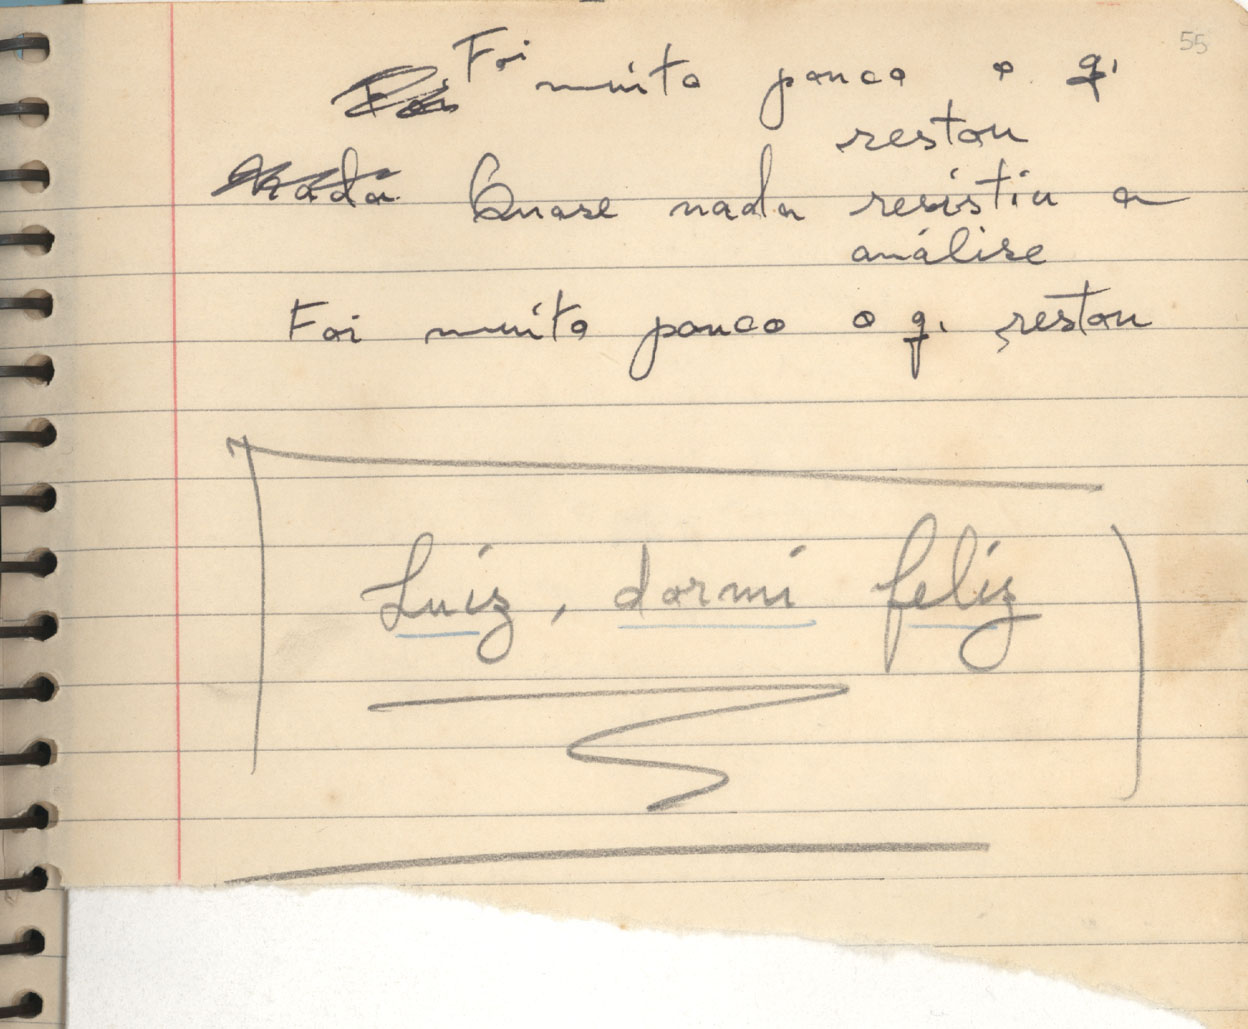 55
Foi muito pouco o q.
restou
Quase nada resistiu a
análise
Foi muito pouco o q. restou
Luiz, dormi feliz